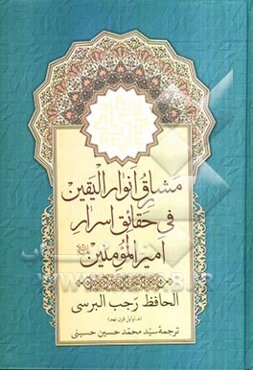 مشارق أنوار الیقین
فی حقائق أسرار
أمیر المؤمنین
الحافظ رجب البرسی
(م. اوایل قرن نهم)
ترجمهٔ سید محمد حسین حسینی